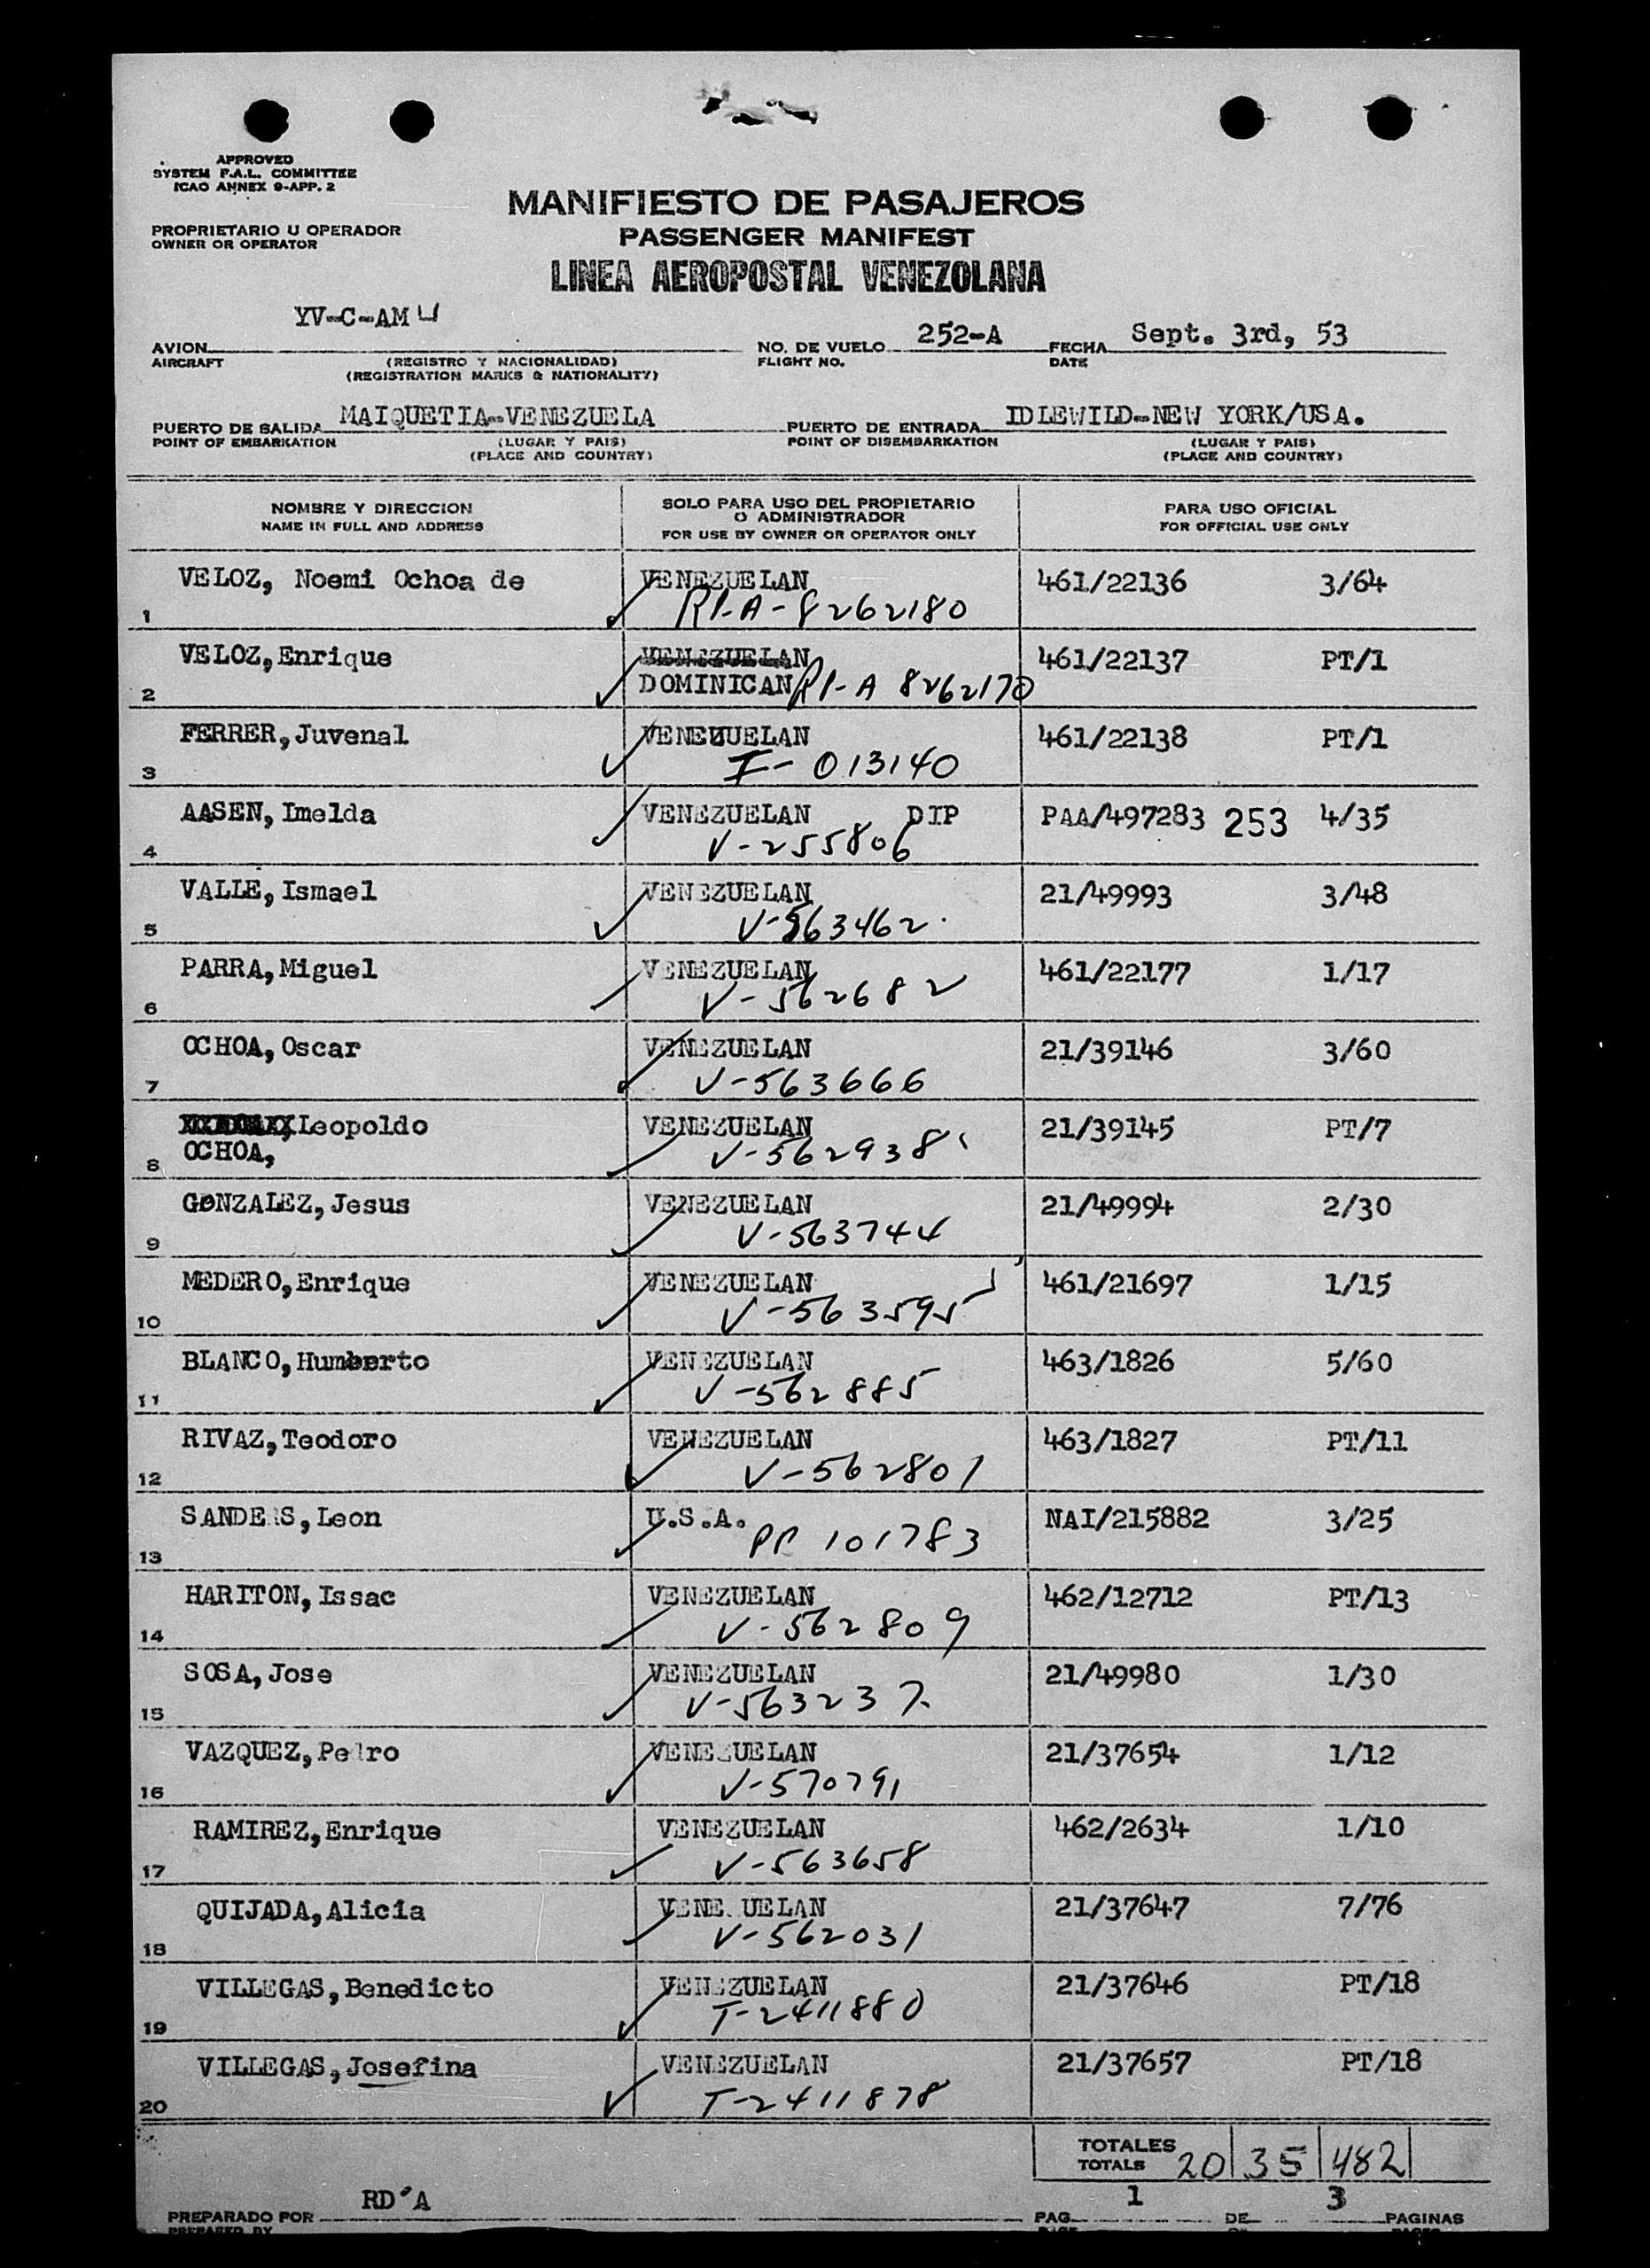 APPROVED
SYSTEM F.A.L. COMMITTEE
ICAO ANNEX 9-APP. 2
MANIFIESTO DE PASAJEROS
PROPRIETARIO U OPERADOR
OWNER OR OPERATOR
PASSENGER MANIFEST
LINEA AEROPOSTAL VENEZOLANA
YV-C-AMU
AVION
AIRCRAFT
(REGISTRO Y NACIONALIDAD)
(REGISTRATION MARKS & NATIONALITY)
NO. DE VUELO 252-A
FLIGHT NO.
FECHA Sept. 3rd, 53
DATE
PUERTO DE SALIDA MAIQUETIA-VENEZUELA
POINT OF EMBARKATION
(LUGAR Y PAIS)
(PLACE AND COUNTRY)
PUERTO DE ENTRADA IDLEWILD-NEW YORK/USA.
POINT OF DISEMBARKATION
(LUGAR Y PAIS)
(PLACE AND COUNTRY)
NOMBRE Y DIRECCION
NAME IN FULL AND ADDRESS
SOLO PARA USO DEL PROPIETARIO
O ADMINISTRADOR
FOR USE BY OWNER OR OPERATOR ONLY
PARA USO OFICIAL
FOR OFFICIAL USE ONLY
VELOZ, Noemi Ochoa de VENEZUELAN 461/22136 3/64
1 RP-A-8262180
VELOZ, Enrique VENEZUELAN 461/22137 PT/1
2 DOMINICAN RP-A 8262170
FERRER, Juvenal VENEZUELAN 461/22138 PT/1
3 I-013140
AASEN, Imelda VENEZUELAN DIP PAA/497283 253 4/35
4 V-255806
VALLE, Ismael VENEZUELAN 21/49993 3/48
5 V-563462
PARRA, Miguel VENEZUELAN 461/22177 1/17
6 V-562682
OCHOA, Oscar VENEZUELAN 21/39146 3/60
7 V-563666
Leopoldo VENEZUELAN 21/39145 PT/7
8 OCHOA, V-562938
GONZALEZ, Jesus VENEZUELAN 21/49994 2/30
9 V-563744
MEDERO, Enrique VENEZUELAN 461/21697 1/15
10 V-563595
BLANCO, Humberto VENEZUELAN 463/1826 5/60
11 V-562885
RIVAZ, Teodoro VENEZUELAN 463/1827 PT/11
12 V-562801
SANDERS, Leon U.S.A. NAI/215882 3/25
13 PP 101783
HARITON, Issac VENEZUELAN 462/12712 PT/13
14 V-562809
SOSA, Jose VENEZUELAN 21/49980 1/30
15 V-563237
VAZQUEZ, Pedro VENEZUELAN 21/37654 1/12
16 V-570791
RAMIREZ, Enrique VENEZUELAN 462/2634 1/10
17 V-563658
QUIJADA, Alicia VENEZUELAN 21/37647 7/76
18 V-562031
VILLEGAS, Benedicto VENEZUELAN 21/37646 PT/18
19 T-2411880
VILLEGAS, Josefina VENEZUELAN 21/37657 PT/18
20 T-2411878
TOTALES
TOTALS 20 35 482
PREPARADO POR RD'A
PREPARED BY
PAG. 1 DE 3 PAGINAS